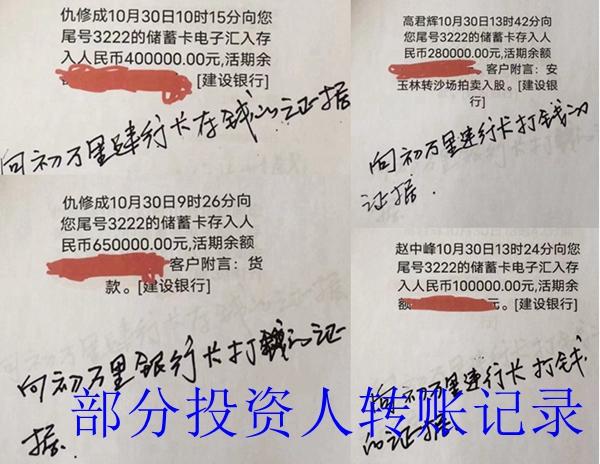 仇修成10月30日10时15分向您
尾号3222的储蓄卡电子汇入存
入人民币400000.00元,活期余
[建设银行]
向初万里建行卡存钱的证据
高君辉10月30日13时42分向
您尾号3222的储蓄卡存入人
民币280000.00元,活期余额
客户附言：安
玉林转沙场拍卖入股。[建设银
行]
向初万里建行卡打钱的
证据.
仇修成10月30日9时26分向
您尾号3222的储蓄卡存入人
民币650000.00元,活期余额
客户附言：货
款。[建设银行]
向初万里银行卡打钱的证
据.
赵中峰10月30日13时24分向您
尾号3222的储蓄卡电子汇入存
入人民币100000.00元,活期余
额 元。[建设银行]
向初万里建行卡打钱
的证据.
部分投资人转账记录